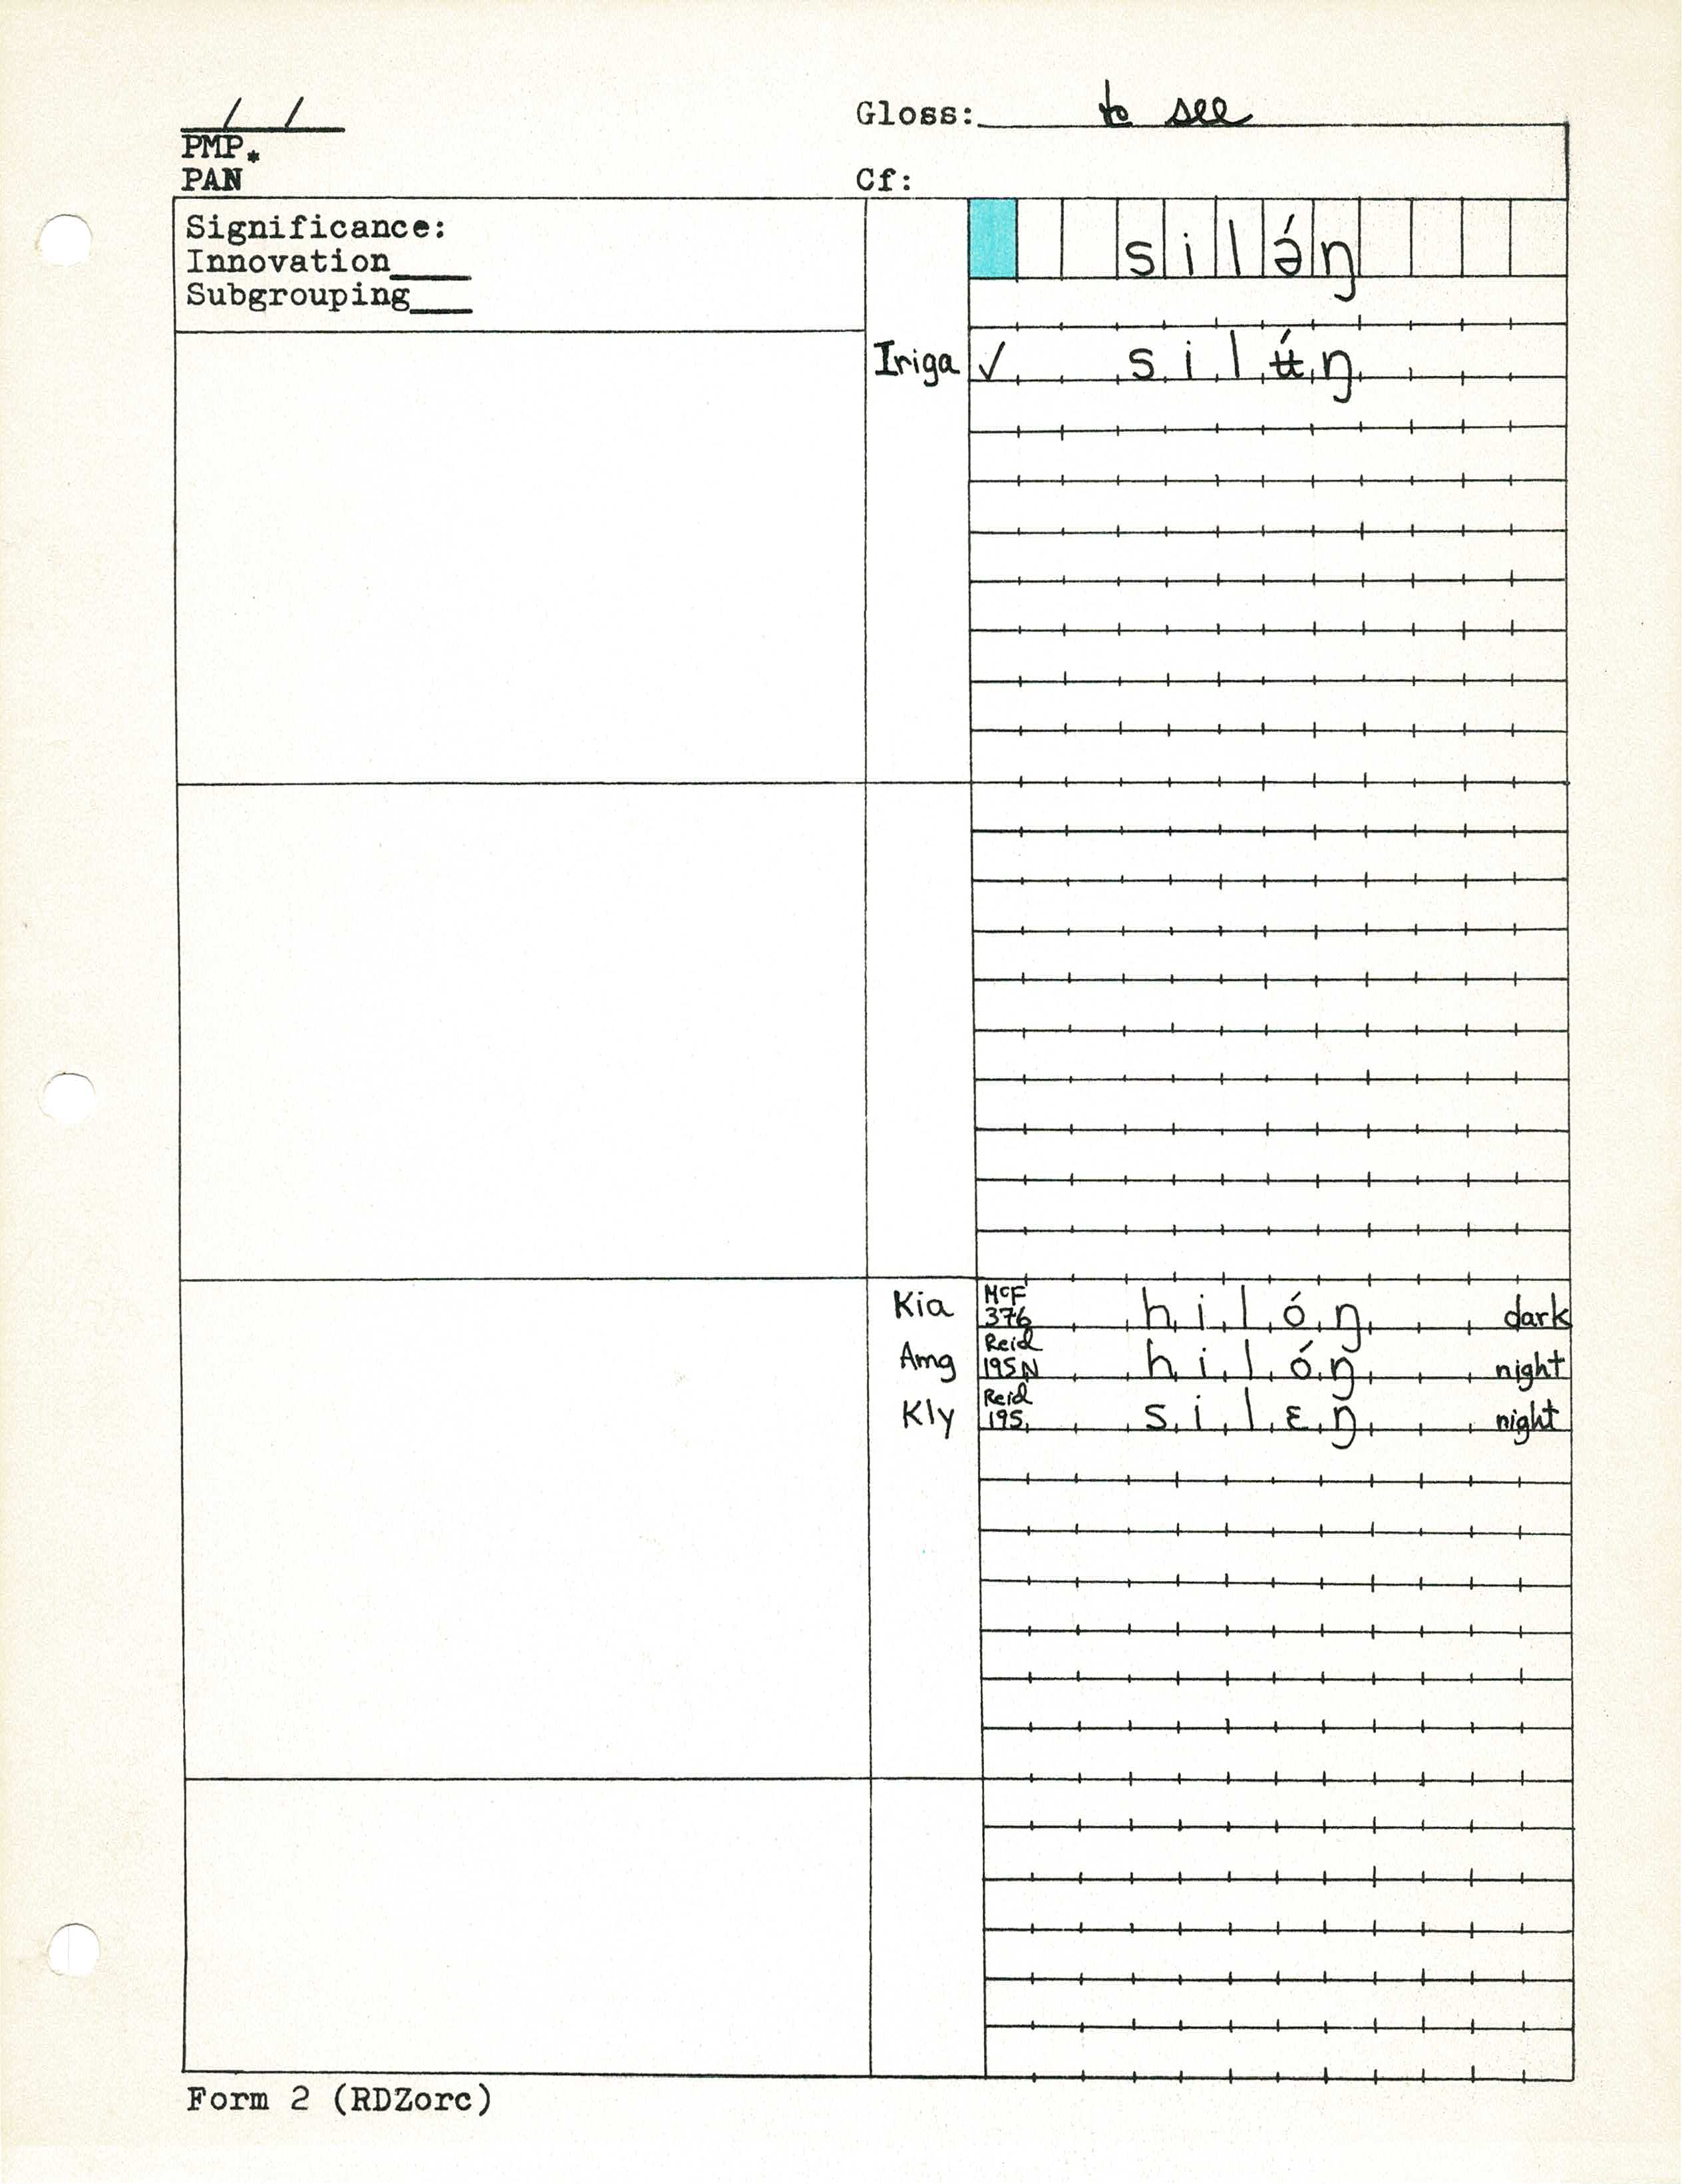 / /
Gloss: to see
PMP*
PAN
Cf:
Significance:
Innovation
Subgrouping
silə́ŋ
Iriga ✓ silʉ́ŋ
Kia McF 376 hilóŋ dark
Amg Reid 195N hilóŋ night
Kly Reid 195 silɛŋ night
Form 2 (RDZorc)